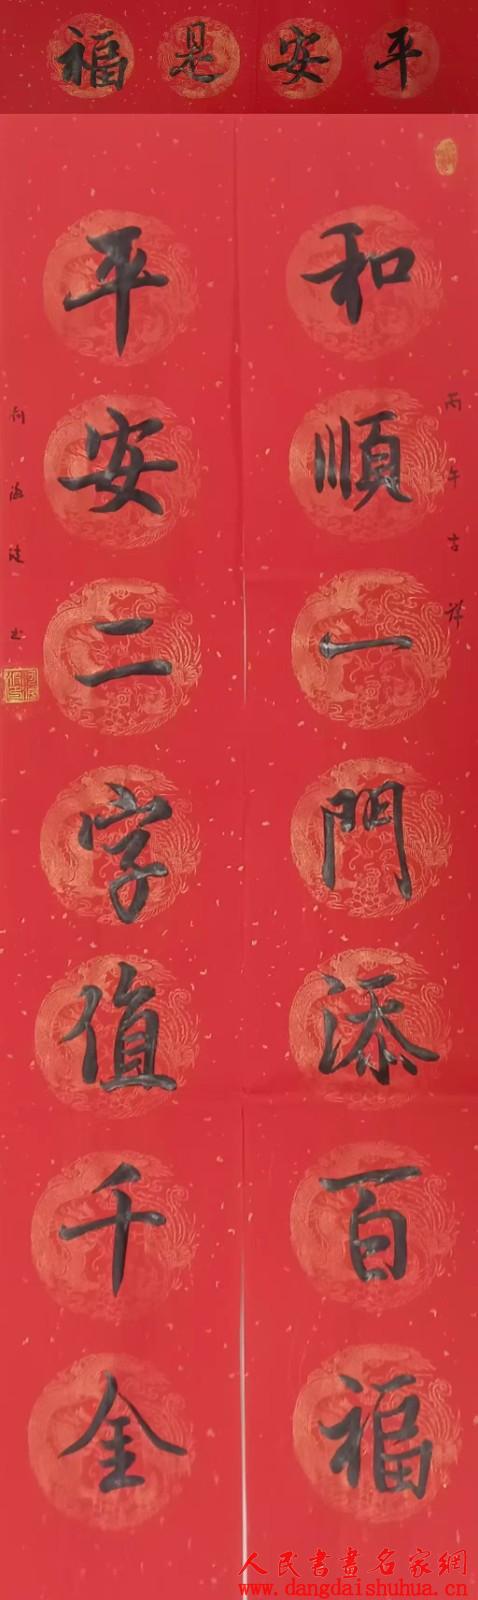 平安是福
和順一門添百福
丙午吉祥
平安二字值千金
人民書畫名家網
www.dangdaishuhua.cn